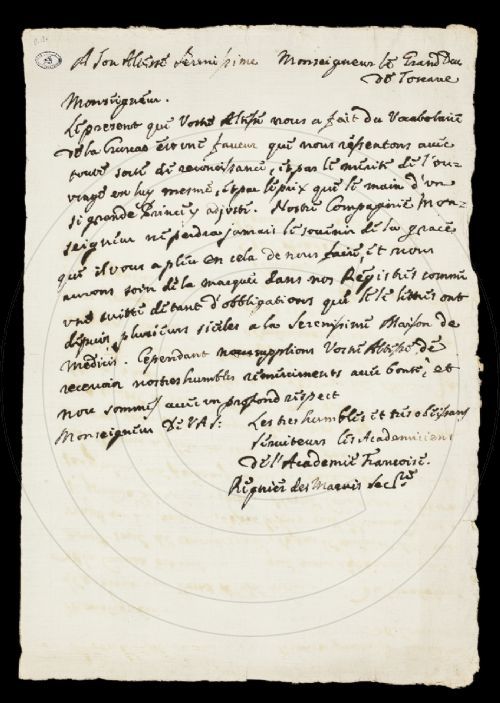 A Son Altesse Serenissime Monseigneur le Grand Duc
de Toscane
Monseigneur.
Le present que Vostre Altesse nous a fait du Vocabolaire
de la Crusca est une faveur que nous ressentons avec
toute sorte de reconoissance, et par le merite de l'ou-
vrage en luy mesme, et par le prix que la main d'un
si grande Prince y adjoste. Nostre Compagnie Mon-
seigneur ne perdra jamais le souvenir de la grace
qui il vous a pleu en cela de nous faire, et nous
aurons soin de la marquer dans nos Registres comme
une suitte de tant d'obbligations que les lettres ont
depuis plusieurs siecles a la Serenissime Maison de
Medicis. Cependant nous supplions Vostre Altesse de
recevoir nostres humbles remerciments avec bonté, et
nou sommes avec un profond respect
Monseigneur De V. A. S:
Les tres humbles et tres obeissans
serviteurs les Academiciens
de l'Academie Françoise.
Regnier des Marais Sec.re